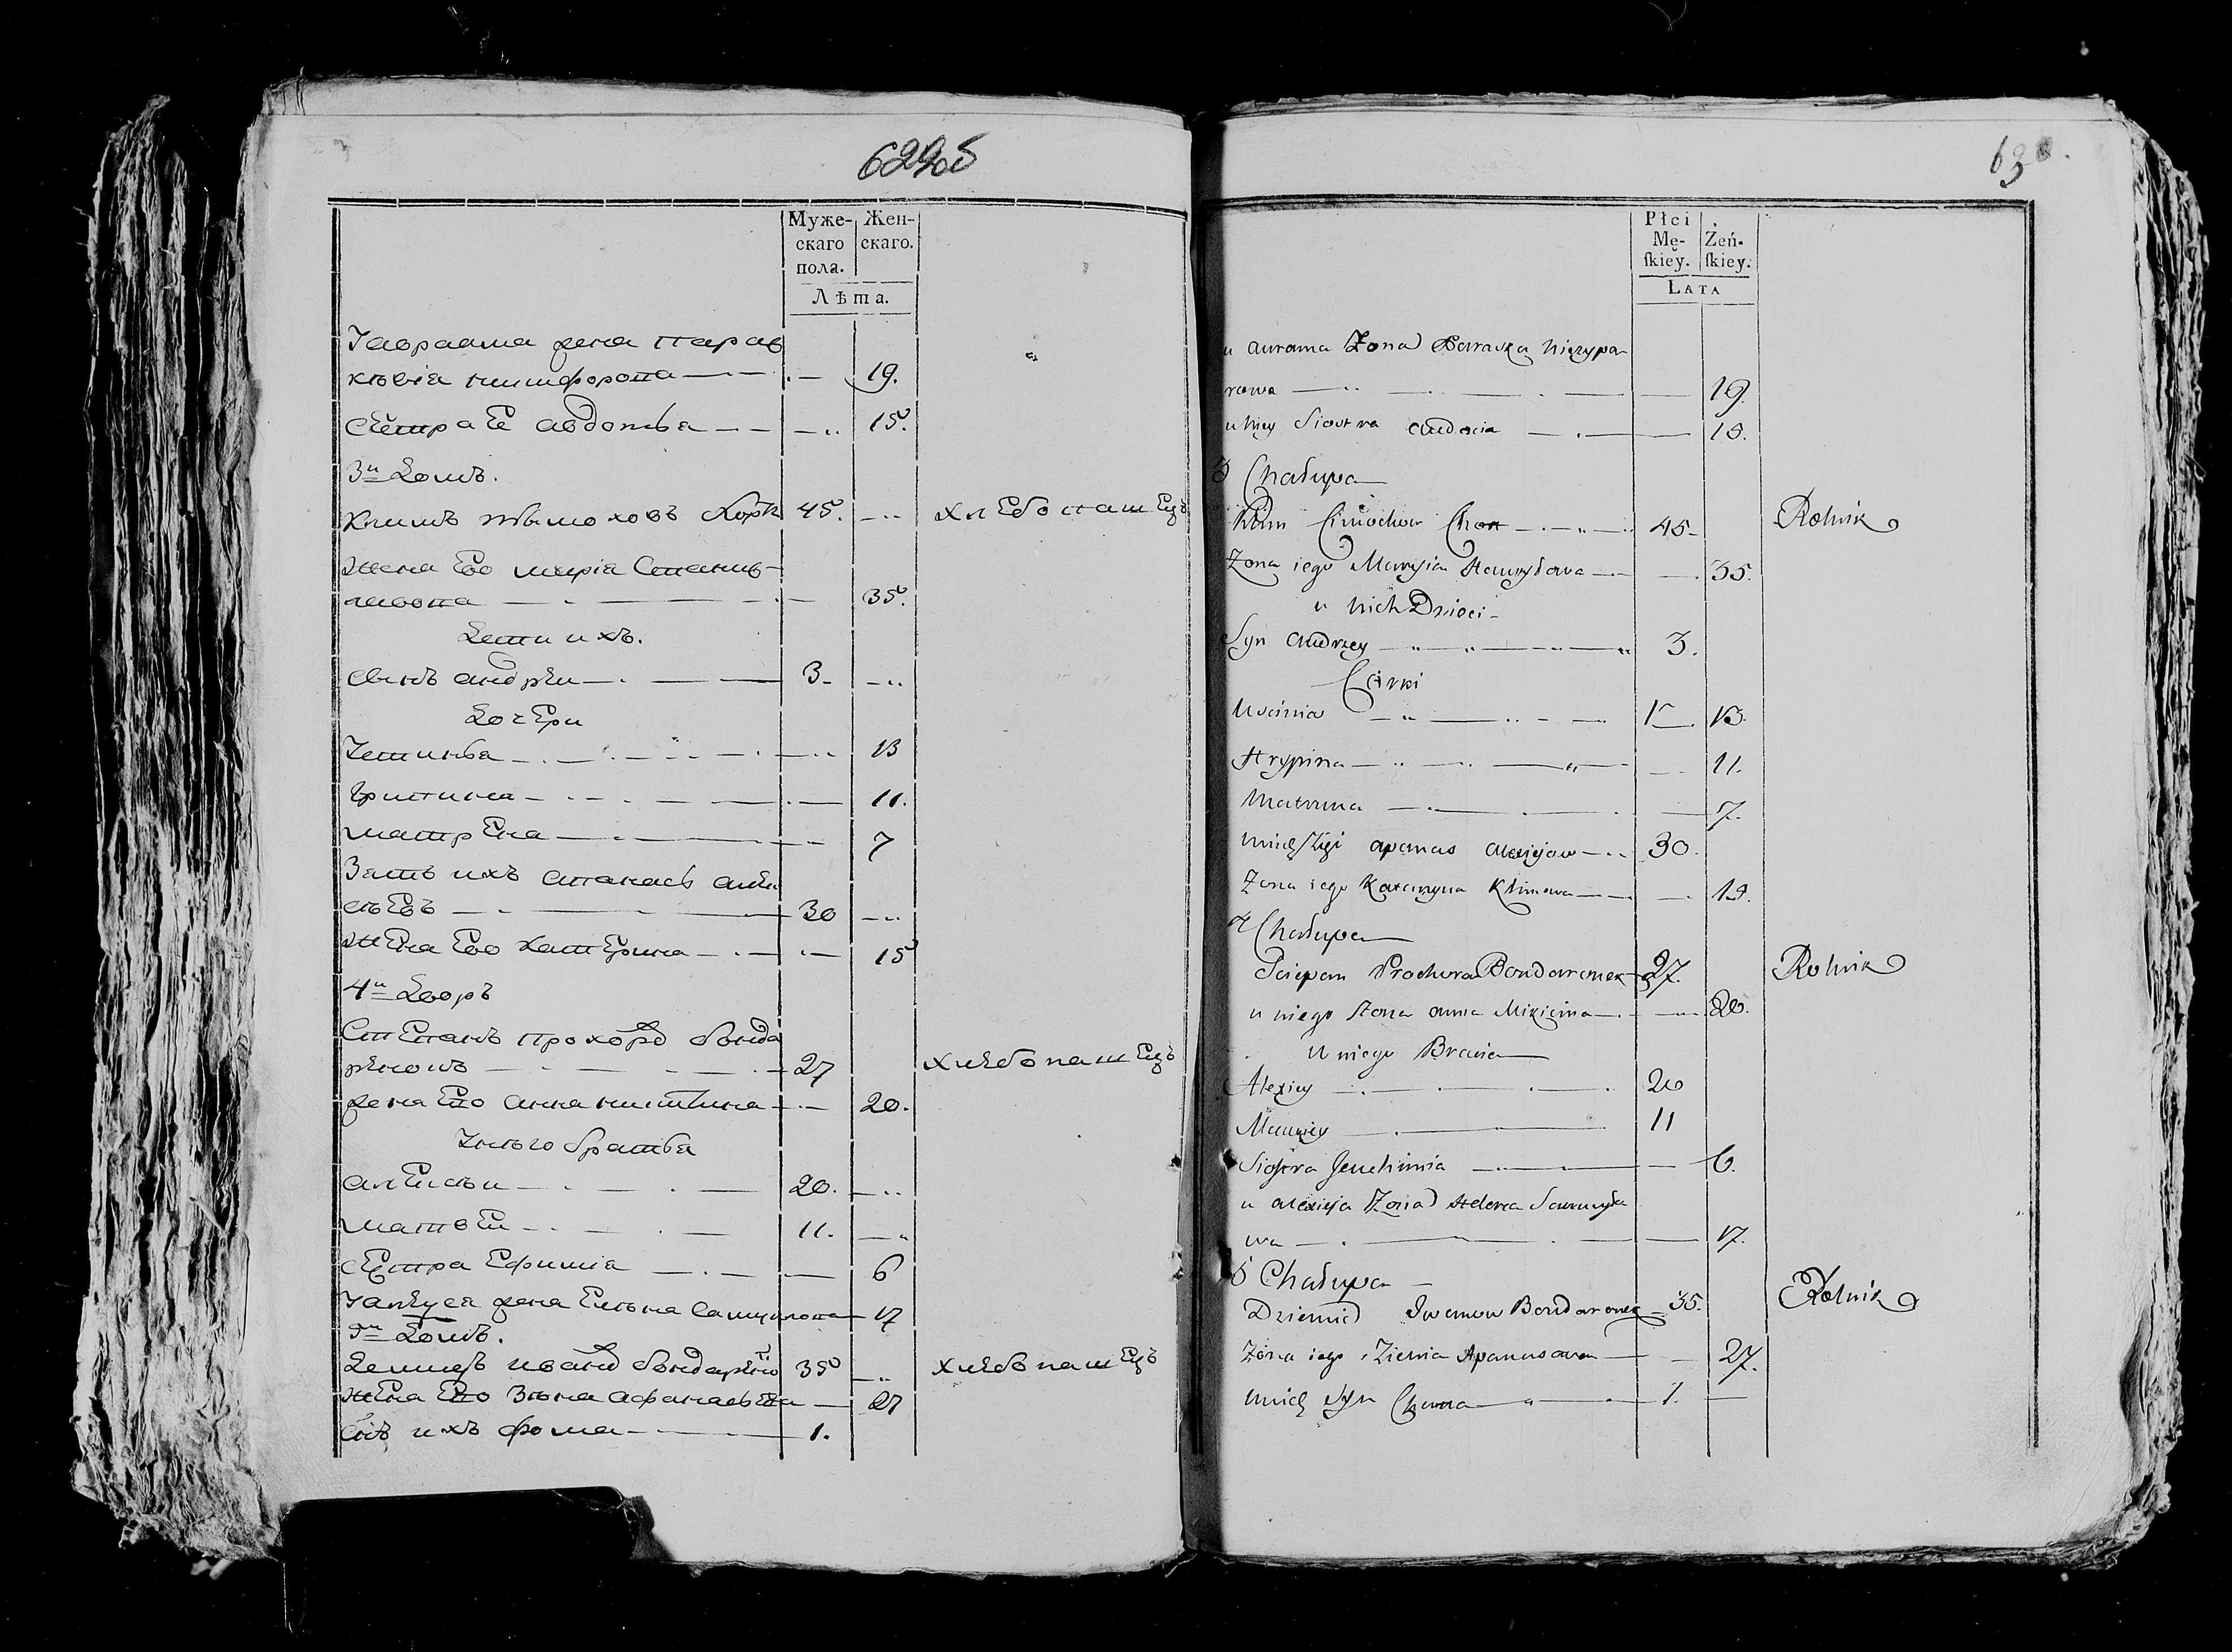 629об
Муже-
скаго
пола.
Жен-
скаго.
Лѣта.
Уавраама жена парас
кѣвіа никифорова 19.
сестра Её авдотьа 15.
3й Домъ.
климъ тымоховъ 45. хлЕбопашЕцъ
жена Ево маріа
35.
Дети ихъ.
сынъ андрѣи 3
ДочЕри
Устиньа 13
11.
матрЕна 7
Зать ихъ апанасъ алЕк
сѣЕвъ 30
жЕна Ево катЕрина 15
4й Дворъ
СтЕпанъ прохоровъ бонда
рЕнокъ 27 хлЕбопашЕцъ
жена Ево анна никитина 20.
Унього братьа
алЕксѣи 20.
матвЕи 11.
сЕстра Ефиміа 6
УалЕксѣа жена Елѣна самуилова 17
5й Домъ.
Демидъ ивановъ бондарЕнокъ 35 хлЕбопашЕцъ
жЕна Ево афанасьЕва 27
сынъ ихъ фома 1.
630.
Płci
Mę-
ſkiey.
Żeń-
ſkiey.
LATA
u aurama Zona Paraska Niczypa
rowa 19.
u niey Siostra Audocia 15.
3 Chałupa
Klim Cimochow 45 Rolnik
Zona iego Marysia 35.
u nich Dzieci
Syn Andrzey 3.
Corki
Uścinia 13.
Hrypina 11.
Matruna 7.
unich Zięć apanas Alexiejow 30.
Zona iego Katarzyna Klimowa 15.
4 Chałupa
Sciepan Prochorow Bondaronek 27. Rolnik
u niego Żona anna Mikicina 20.
U niego Bracia
Alexiey 20
Maciey 11
Siostra Jeuchimia 6.
u Alexieja Zona Helena Samuyła
wa 17.
5 Chałupa
Dziemid Iwanow Bondaronek 35. Rolnik
Żona iego Zienia Apanasowa 27.
unich Syn Choma 1.